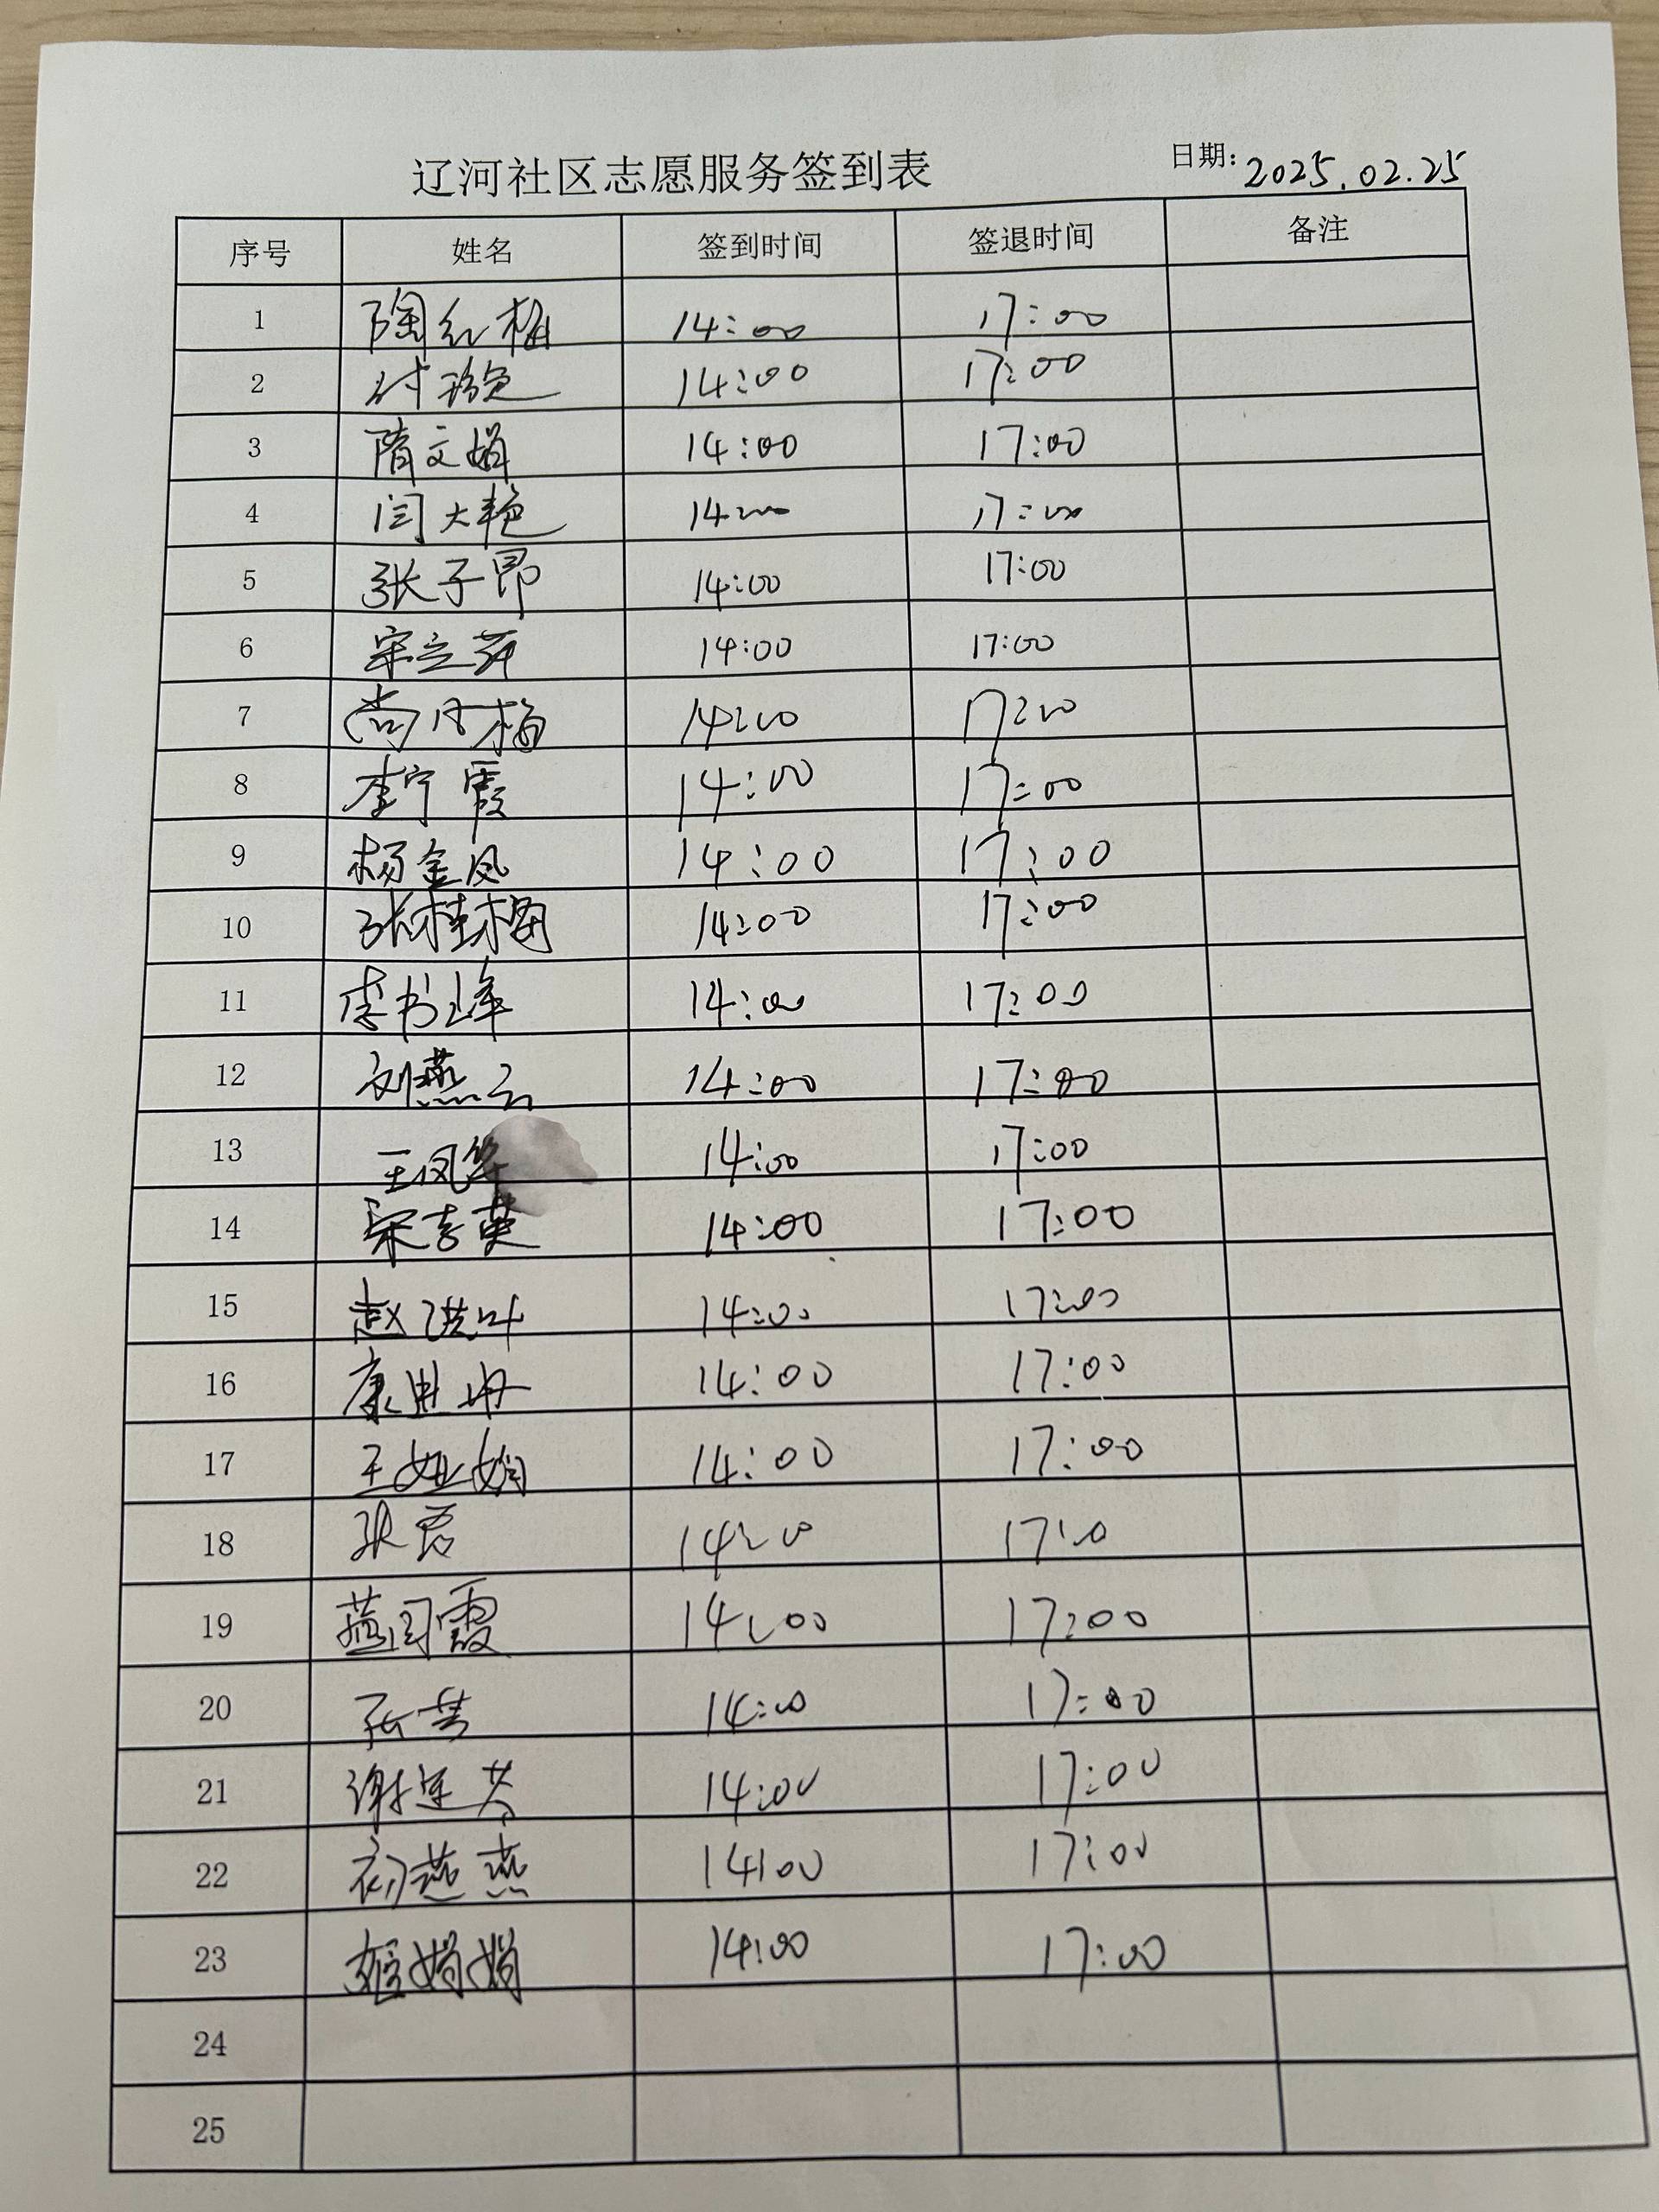 辽河社区志愿服务签到表 日期: 2025.02.25
序号 姓名 签到时间 签退时间 备注
1 陶红梅 14:00 17:00
2 付艳 14:00 17:00
3 隋文娟 14:00 17:00
4 闫大艳 14:00 17:00
5 张子昂 14:00 17:00
6 宋立萍 14:00 17:00
7 尚丹梅 14:00 17:00
8 李宁霞 14:00 17:00
9 杨金凤 14:00 17:00
10 张桂梅 14:00 17:00
11 李书峰 14:00 17:00
12 刘燕云 14:00 17:00
13 王凤华 14:00 17:00
14 宋吉英 14:00 17:00
15 赵洪叶 14:00 17:00
16 康 14:00 17:00
17 王娅娴 14:00 17:00
18 张君 14:00 17:00
19 燕闰霞 14:00 17:00
20 14:00 17:00
21 谢连芬 14:00 17:00
22 初燕燕 14:00 17:00
23 娟娟 14:00 17:00
24
25